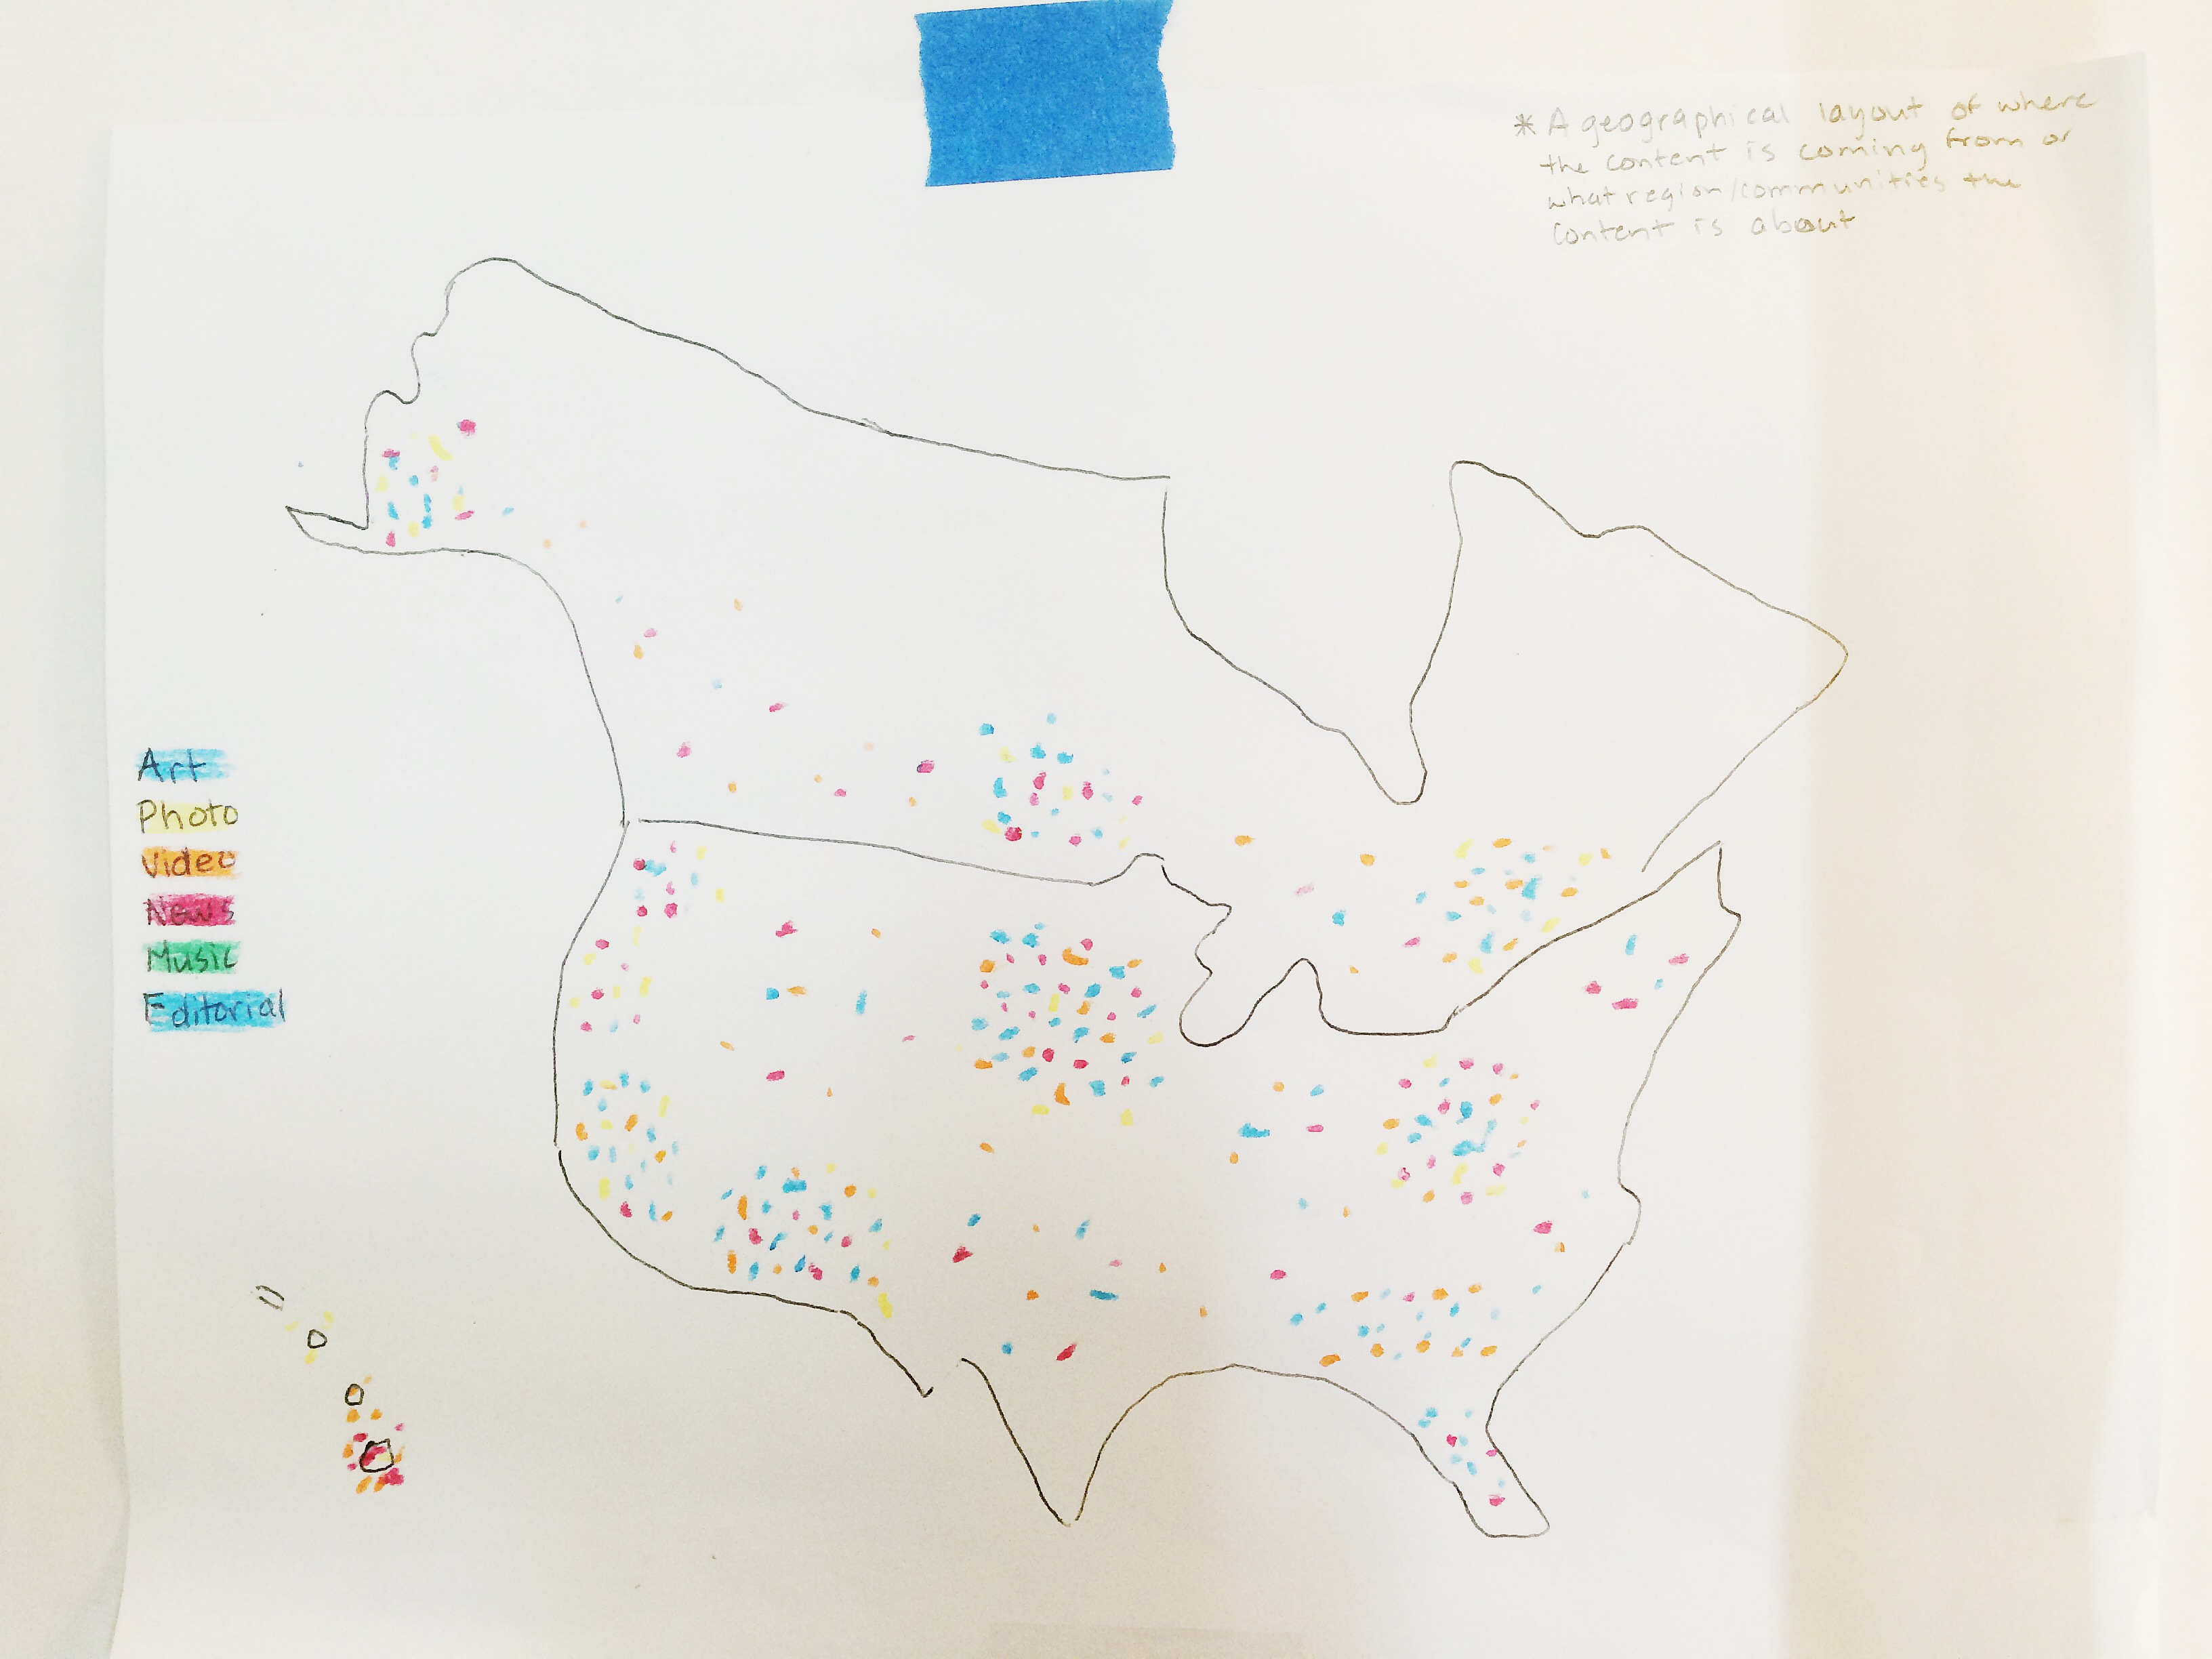 * A geographical layout of where
the content is coming from or
what region/communities the
content is about
Art
Photo
Video
News
Music
Editorial